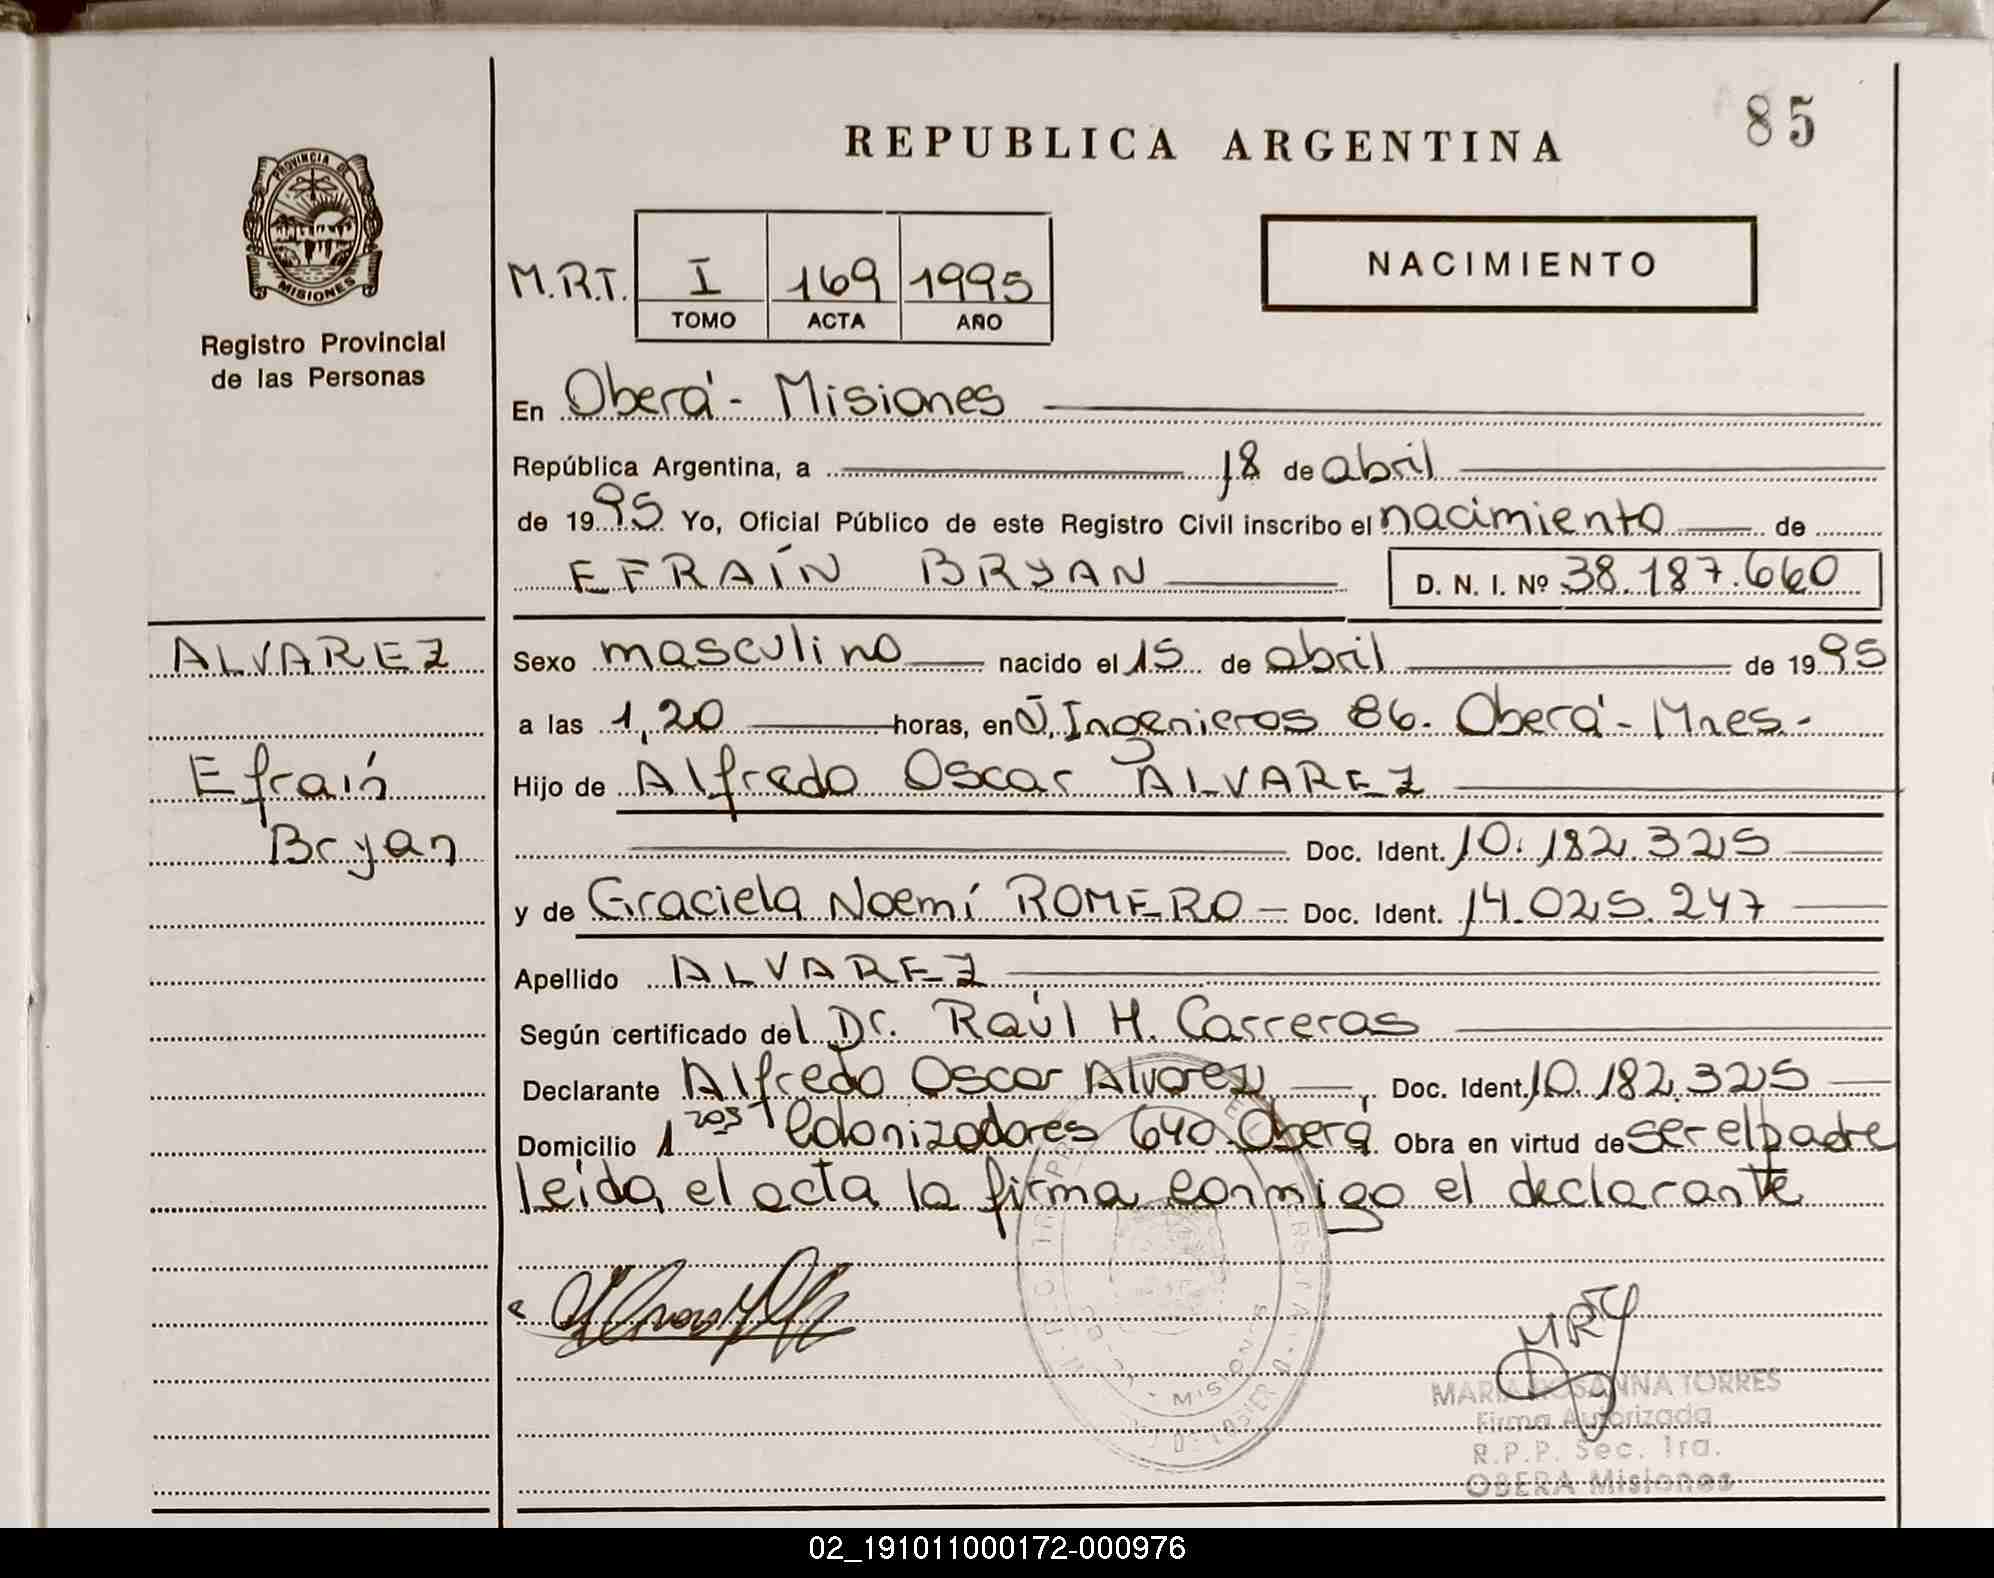 85
REPUBLICA ARGENTINA
PROVINCIA DE
MISIONES
Registro Provincial
de las Personas
NACIMIENTO
M.R.T. I 169 1995
TOMO ACTA AÑO
En Oberá - Misiones
República Argentina, a 18 de abril
de 1995 Yo, Oficial Público de este Registro Civil inscribo el nacimiento de
EFRAÍN BRYAN D. N. I. Nº 38.187.660
ALVAREZ
Efraín
Bryan
Sexo masculino nacido el 15 de abril de 1995
a las 1,20 horas, en J. Ingenieros 86. Oberá - Mnes.-
Hijo de Alfredo Oscar ALVAREZ
Doc. Ident. 10.182.325
y de Graciela Noemí ROMERO - Doc. Ident. 14.025.247
Apellido ALVAREZ
Según certificado del Dr. Raúl H. Carreras
Declarante Alfredo Oscar Alvarez, Doc. Ident. 10.182.325
Domicilio 1ros Colonizadores 640. Oberá. Obra en virtud de ser el padre
leida el acta la firma conmigo el declarante
MISIONES
MARIA ROSANNA TORRES
Firma Autorizada
R.P.P. Sec. 1ra.
OBERA Misiones
02_191011000172-000976